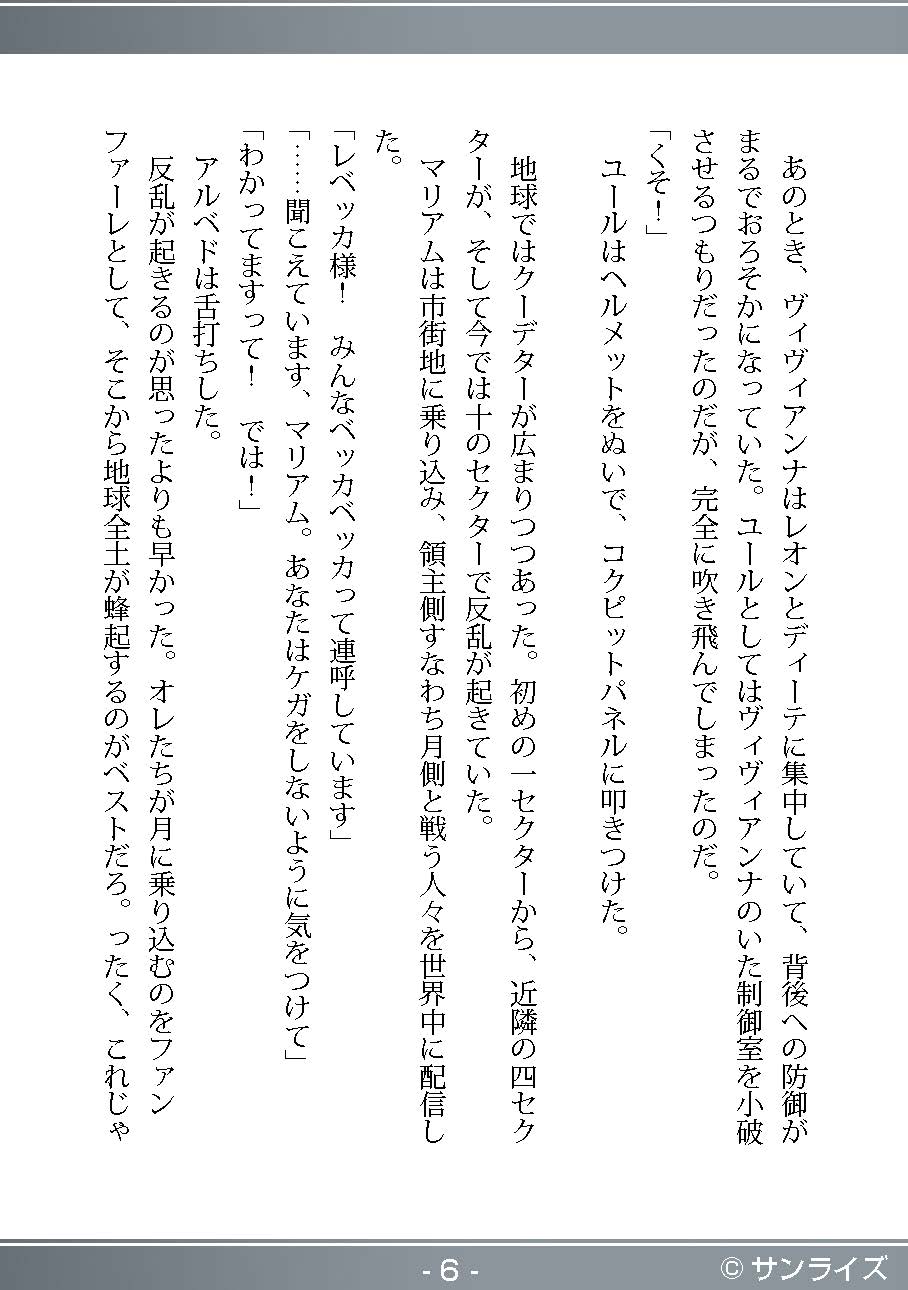 あのとき、ヴィヴィアンナはレオンとディーテに集中していて、背後への防御が
まるでおろそかになっていた。ユールとしてはヴィヴィアンナのいた制御室を小破
させるつもりだったのだが、完全に吹き飛んでしまったのだ。
「くそ！」
ユールはヘルメットをぬいで、コクピットパネルに叩きつけた。
地球ではクーデターが広まりつつあった。初めの一セクターから、近隣の四セク
ターが、そして今では十のセクターで反乱が起きていた。
マリアムは市街地に乗り込み、領主側すなわち月側と戦う人々を世界中に配信し
た。
「レベッカ様！　みんなベッカベッカって連呼しています」
「……聞こえています、マリアム。あなたはケガをしないように気をつけて」
「わかってますって！　では！」
アルベドは舌打ちした。
反乱が起きるのが思ったよりも早かった。オレたちが月に乗り込むのをファン
ファーレとして、そこから地球全土が蜂起するのがベストだろ。ったく、これじゃ
- 6 -
©サンライズ